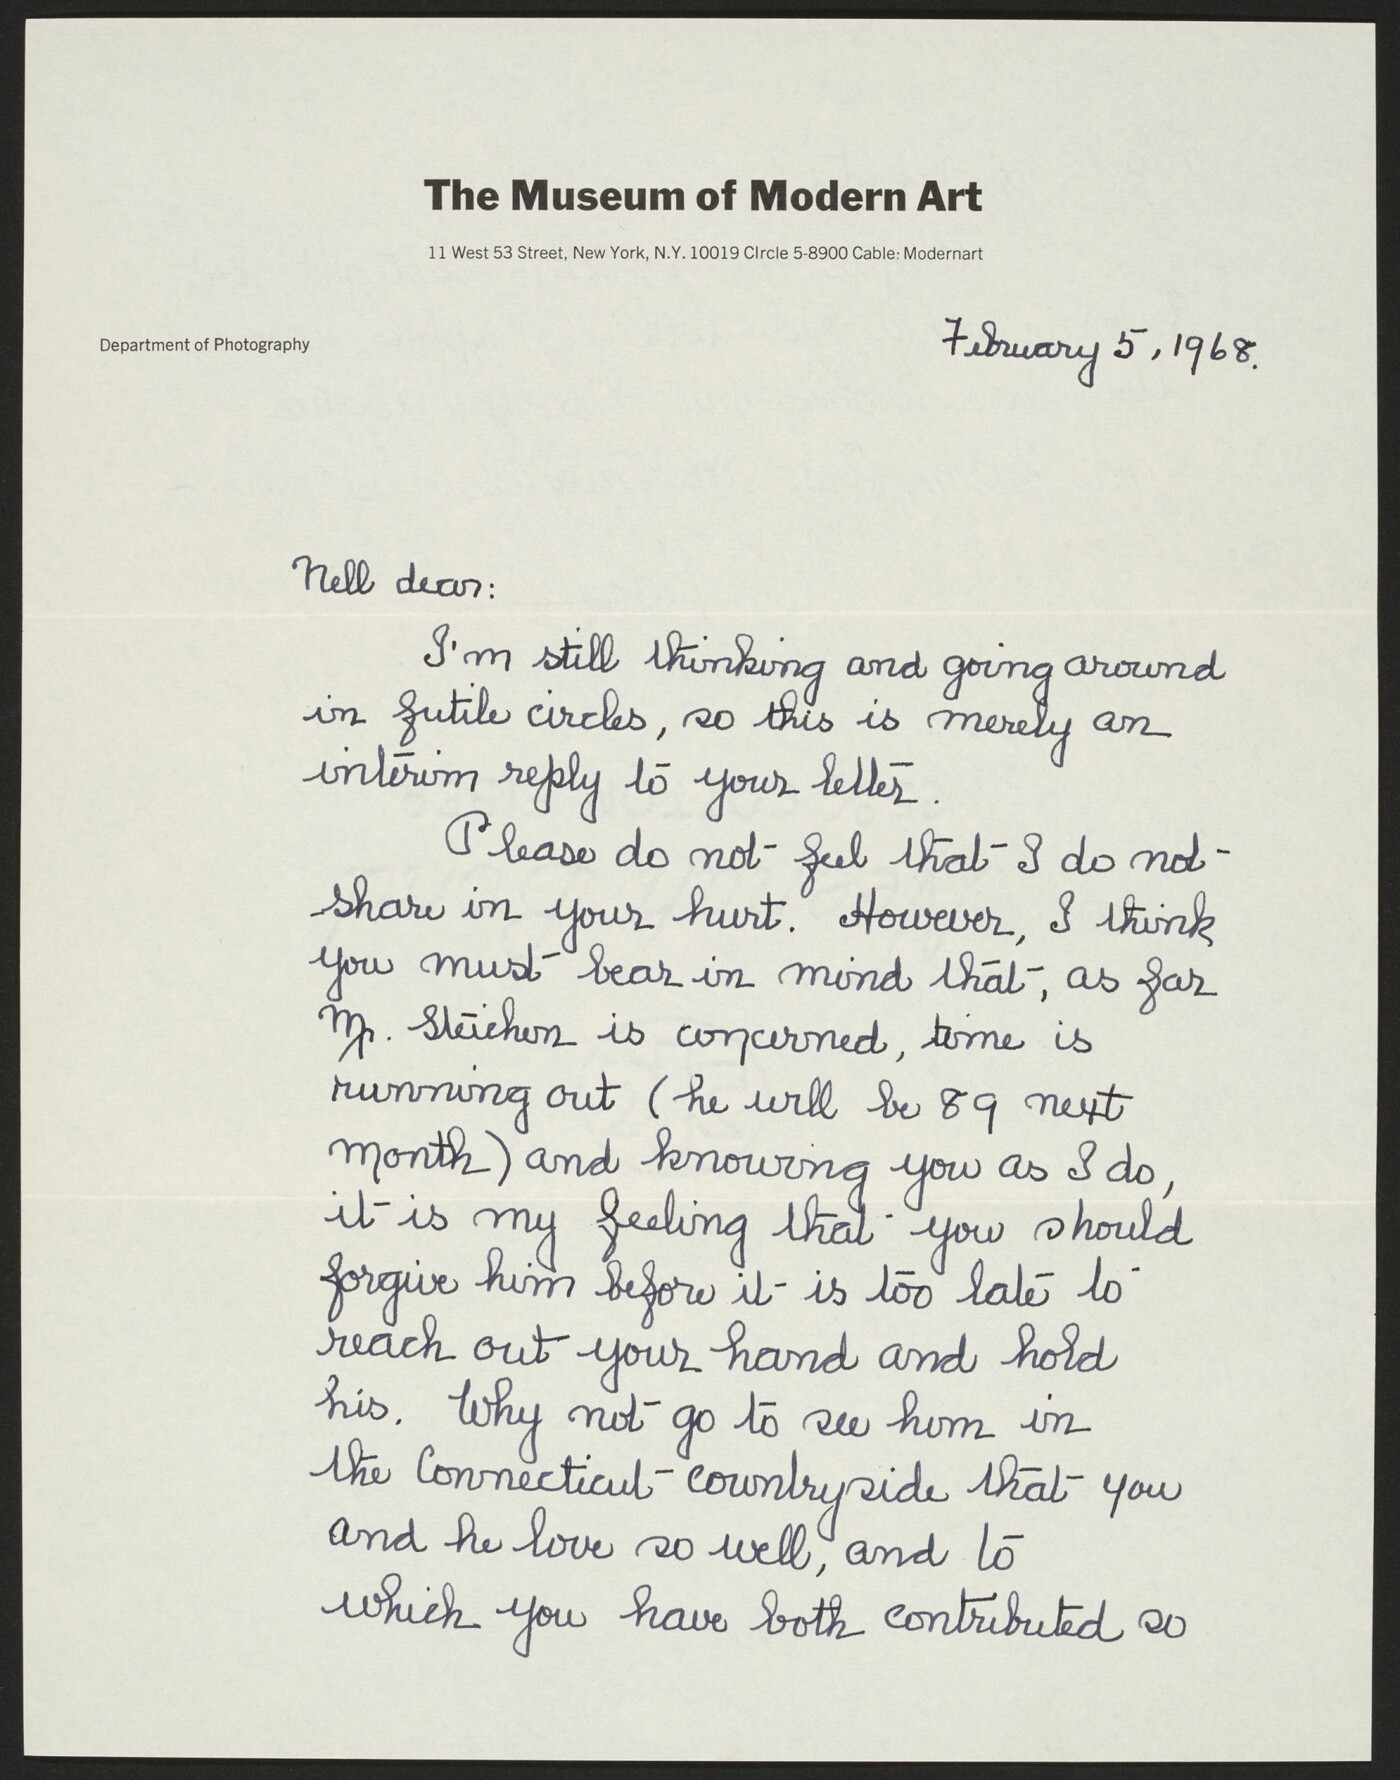 The Museum of Modern Art
11 West 53 Street, New York, N.Y. 10019 CIrcle 5-8900 Cable: Modernart
Department of Photography
February 5, 1968.
Nell dear:
I'm still thinking and going around
in futile circles, so this is merely an
interim reply to your letter.
Please do not feel that I do not
share in your hurt. However, I think
you must bear in mind that, as far
Mr. Steichen is concerned, time is
running out (he will be 89 next
month) and knowing you as I do,
it is my feeling that you should
forgive him before it is too late to
reach out your hand and hold
his. Why not go to see him in
the Connecticut countryside that you
and he love so well, and to
which you have both contributed so